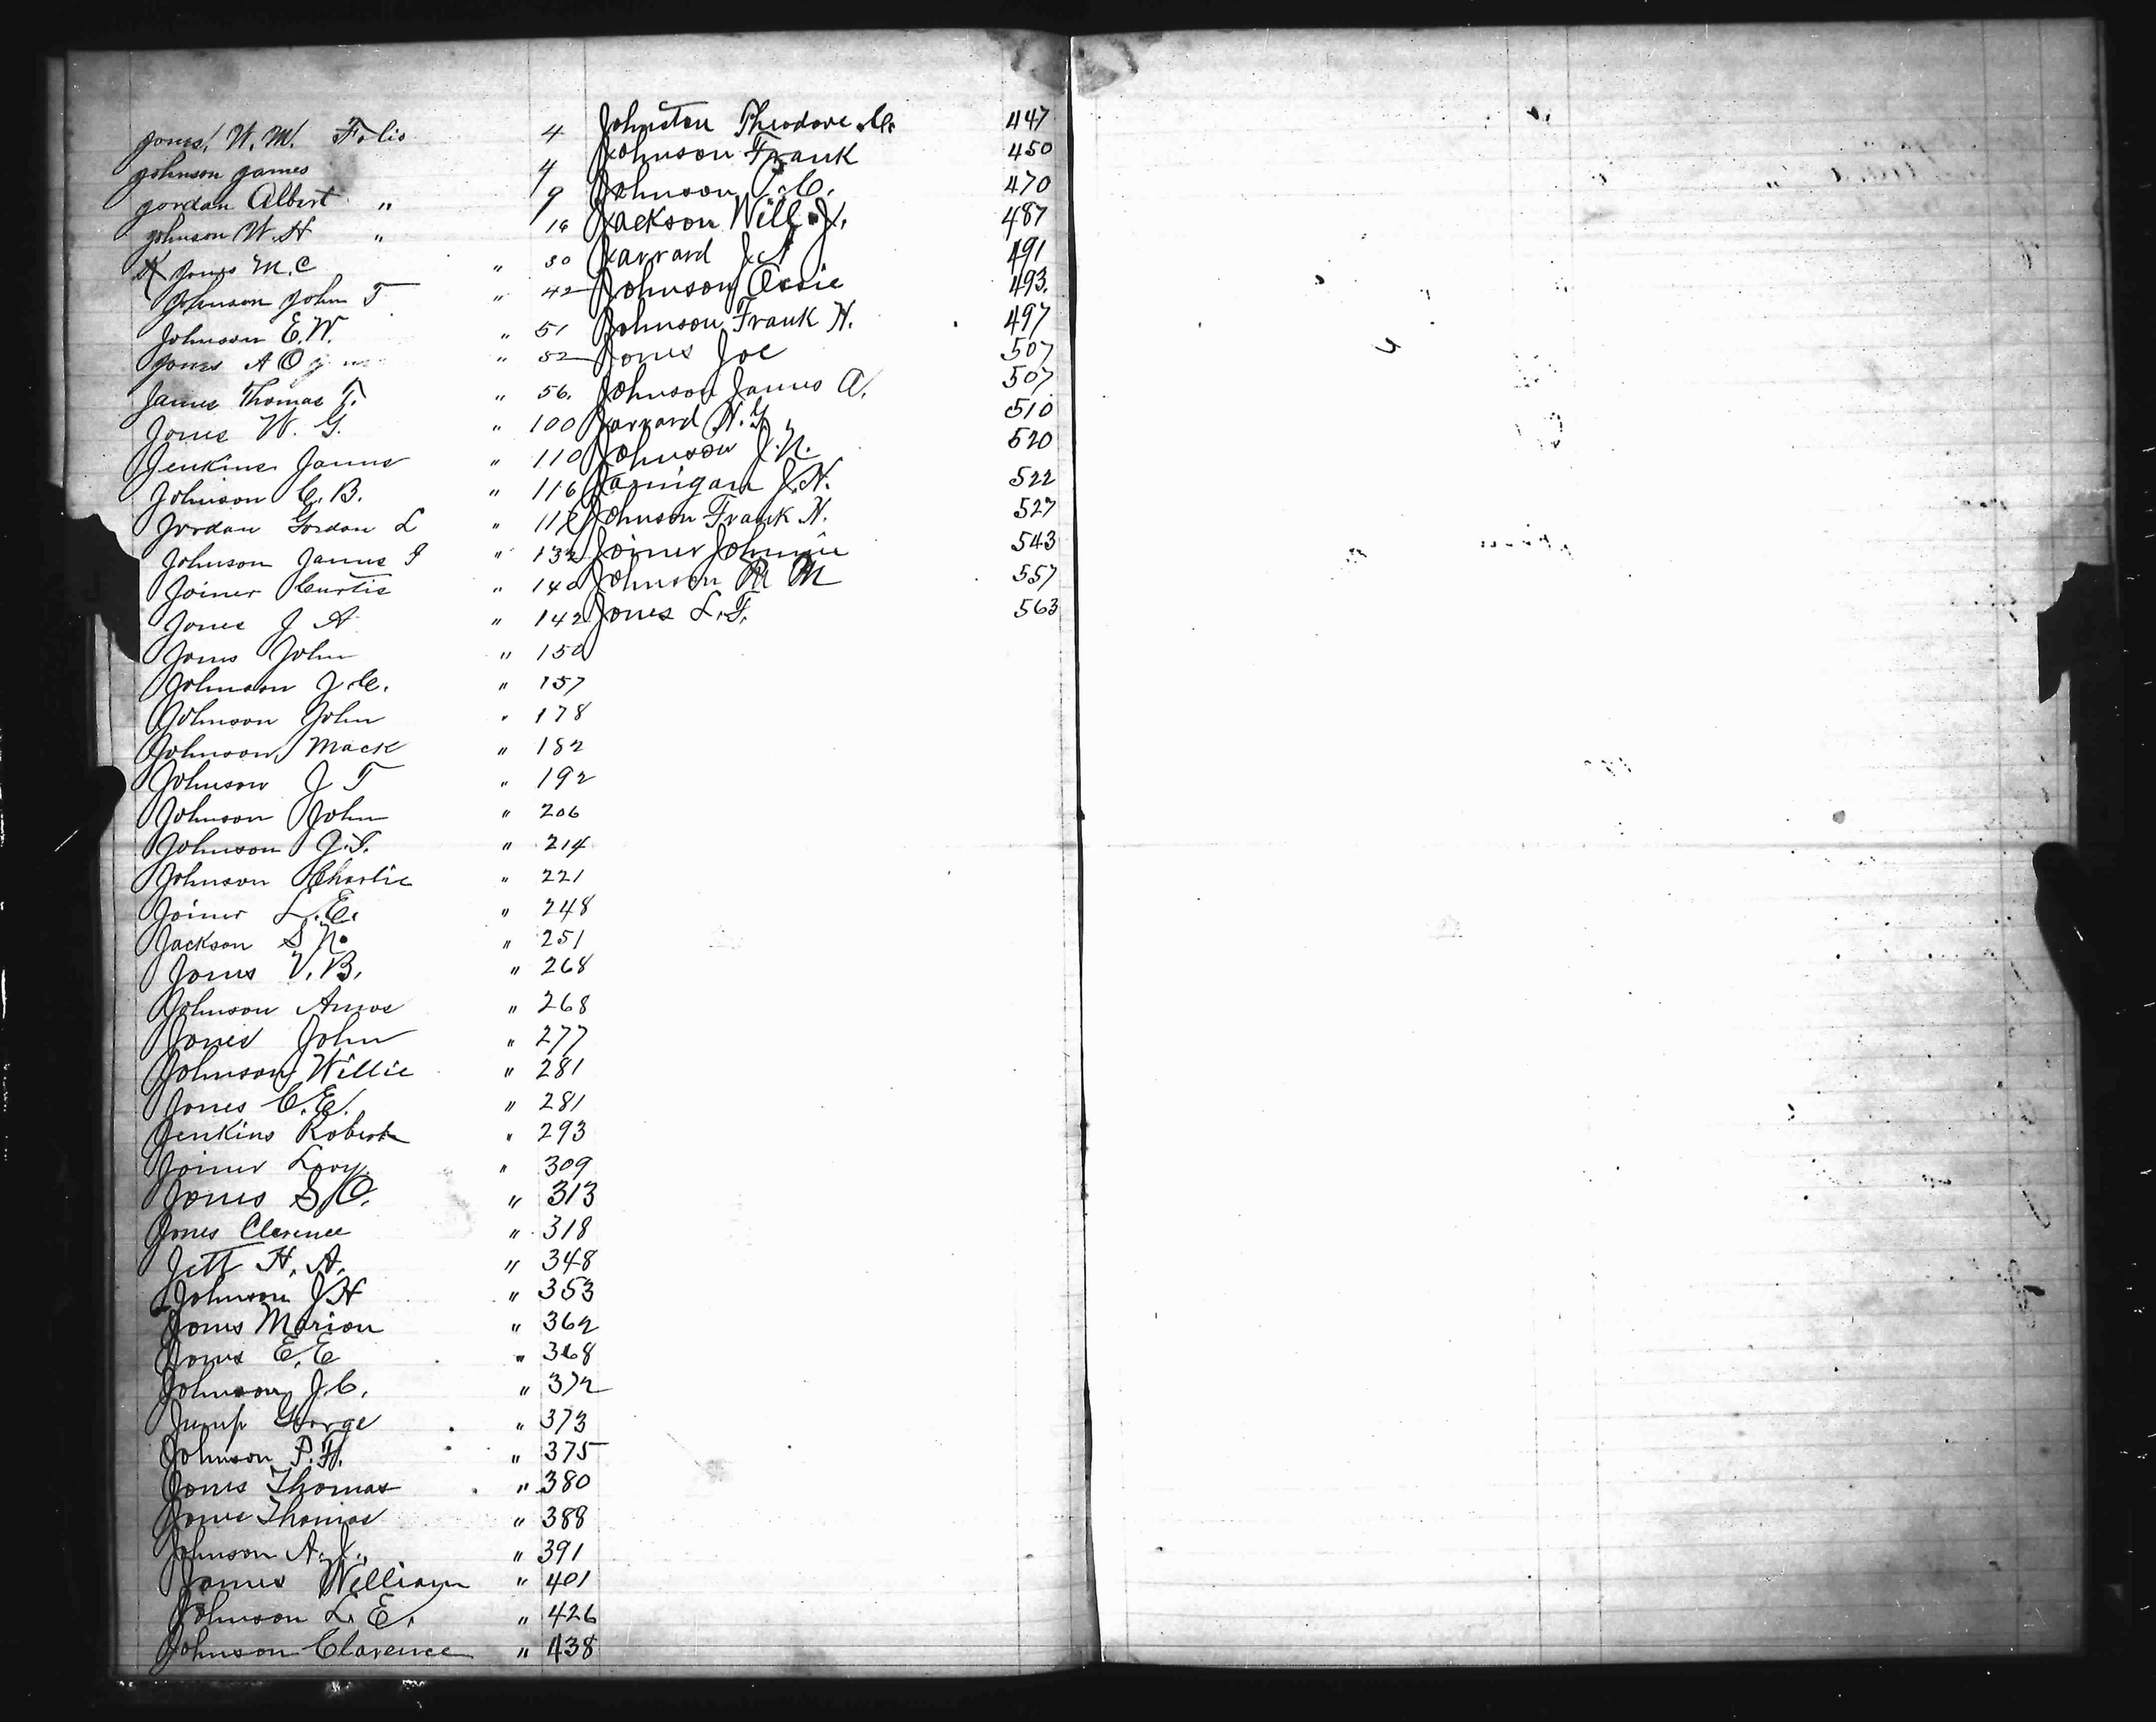 Jones, W. M. Folio 4
Johnson James 4
Jordan Albert " 9
Johnson W. H " 16
X Jones M. C " 30
Johnson John T " 42
Johnson E. W. " 51
Jones A O " 52
James Thomas T. " 56.
Jones W. G. " 100
Jenkins James " 110
Johnson C. B. " 116
Jordan Gordon L " 118
Johnson James " 132
Joiner Curtis " 140
Jones J A " 142
Jones John " 150
Johnson J. C. " 157
Johnson John " 178
Johnson Mack " 182
Johnson J T " 192
Johnson John " 206
Johnson J. S. " 214
Johnson Charlie " 221
Joiner L. E. " 248
Jackson S N. " 251
Jones V. B. " 268
Johnson Amos " 268
Jones John " 277
Johnson Willie " 281
Jones C. E. " 281
Jenkins Robert " 293
Joiner " 309
Jones S. O. " 313
Jones Clarence " 318
Jett H. A. " 348
Johnson J H " 353
Jones Marion " 362
Jones E. E " 368
Johnson J. C. " 372
Jump George " 373
Johnson P. H. " 375
Jones Thomas " 380
Jones Thomas " 388
Johnson A. J. " 391
James William " 401
Johnson L. E. " 426
Johnson Clarence " 438
Johnston Theodore C. 447
Johnson Frank 450
Johnson J. C. 470
Jackson Will J. 487
Jarrard J. 491
Johnson Ossie 493.
Johnson Frank H. 497
Jones Joe 507
Johnson James A. 507
Jarrard H. G. 510
Johnson J. N. 520
Jarnigan J. H. 522
Johnson Frank H. 527
Joiner Johnnie 543
Johnson M 557
Jones L. F. 563